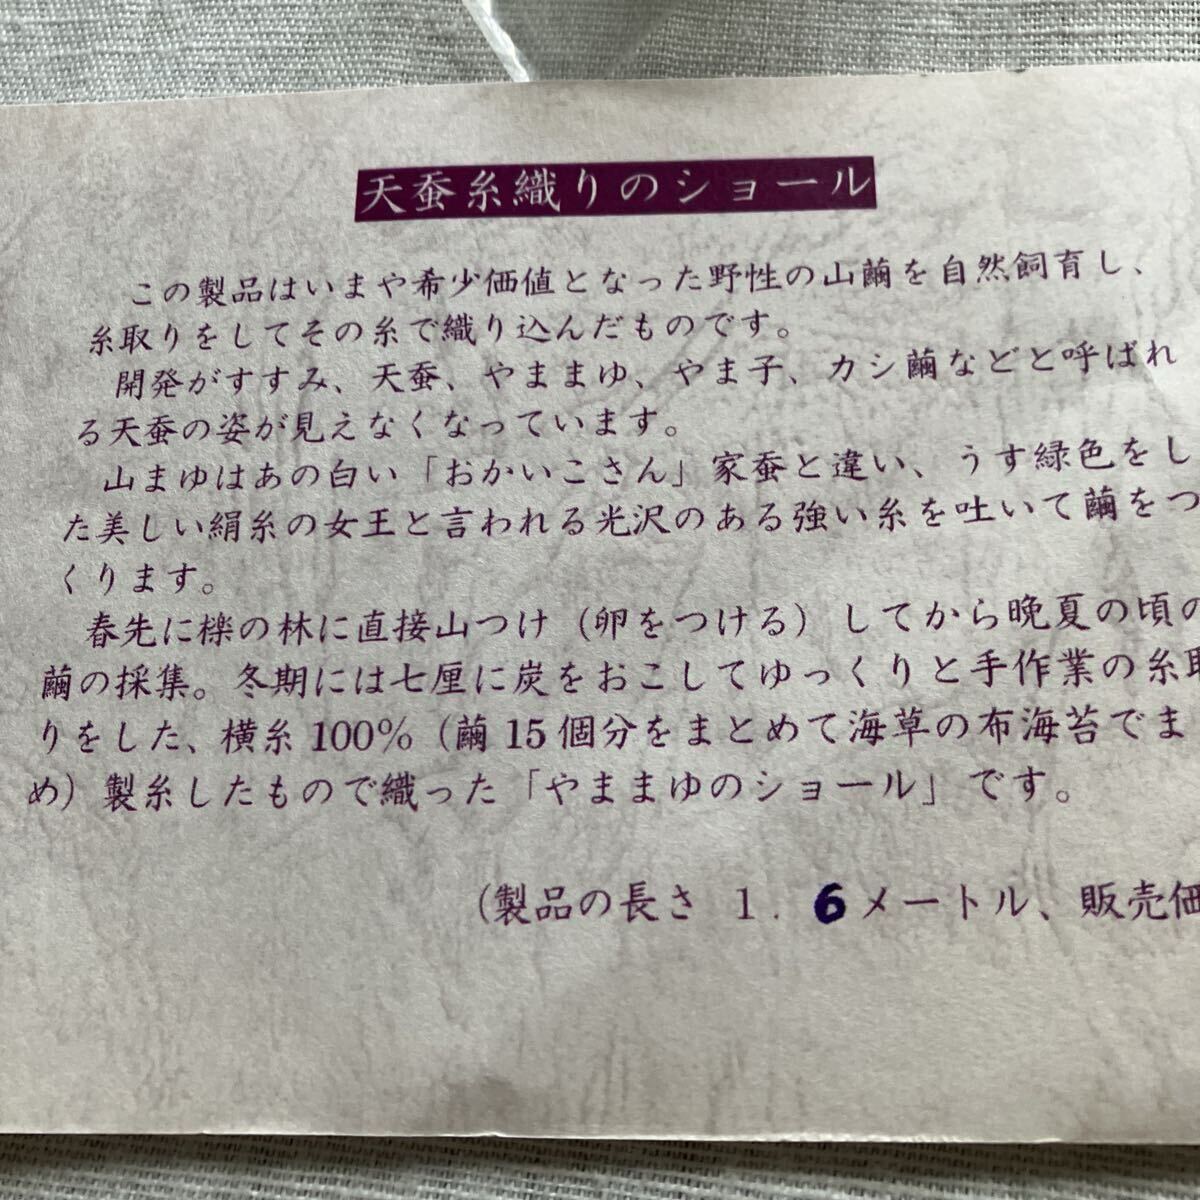 天蚕糸織りのショール
この製品はいまや希少価値となった野性の山繭を自然飼育し、
糸取りをしてその糸で織り込んだものです。
開発がすすみ、天蚕、やままゆ、やま子、カシ繭などと呼ばれ
る天蚕の姿が見えなくなっています。
山まゆはあの白い「おかいこさん」家蚕と違い、うす緑色をし
た美しい絹糸の女王と言われる光沢のある強い糸を吐いて繭をつ
くります。
春先に櫟の林に直接山つけ（卵をつける）してから晩夏の頃の
繭の採集。冬期には七厘に炭をおこしてゆっくりと手作業の糸取
りをした、横糸100%（繭15個分をまとめて海草の布海苔でま
め）製糸したもので織った「やままゆのショール」です。
（製品の長さ 1.6メートル、販売価